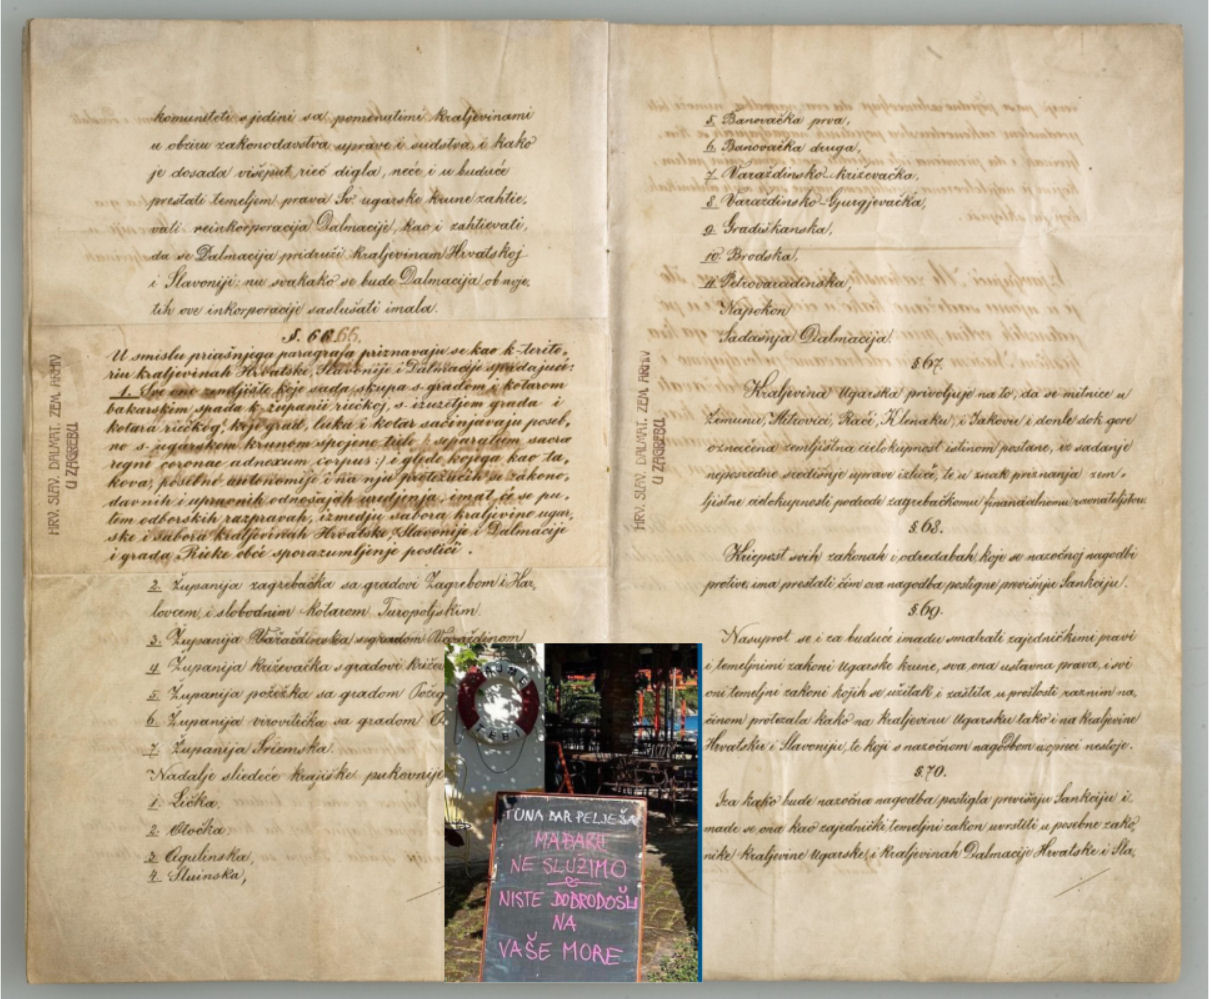 komuniteti sjedini sa pomenutimi kraljevinami
u obziru zakonodavstva uprave i sudstva, i kako
je dosada višeput rieč digla, neće i u buduće
prestati temeljem prava Sv. ugarske krune zahtie,
vati reinkorporaciju Dalmacije, kao i zahtievati,
da se Dalmacija pridruži kraljevinam Hrvatskoj
i Slavoniji: nu svakako se bude Dalmacija ob uvje,
tih ove inkorporacije saslušati imala.
§. 66 65.
U smislu priašnjega paragrafa priznavaju se kao k terito,
riu kraljevinah Hrvatske, Slavonije i Dalmacije spadajući:
1. Sve ono zemljište, koje sada skupa s gradom i kotarom
bakarskim spada k županii riečkoj, s izuzetjem grada i
kotara riečkog; koji grad, luka i kotar sačinjavaju poseb,
no s ugarskom krunom spojeno tielo /: separatum sacrae
regni coronae adnexum corpus :/ i glede kojega kao ta,
kova, posebne autonomije i na nju protežućih se zakono,
davnih i upravnih odnošajah uredjenja, imat će se pu,
tem odborskih razpravah, izmedju sabora kraljevine ugar,
ske i sabora kraljevinah Hrvatske, Slavonije i Dalmacije
i grada Rieke obće sporazumljenje postići.
2. Županija zagrebačka sa gradovi Zagrebom i Kar,
lovcem, i slobodnim kotarom Turopoljskim.
3. Županija Varaždinska s gradom Varaždinom
4. Županija križevačka s gradovi Križev
5. Županija požežka sa gradom Požeg
6. Županija virovitička sa gradom O
7. Županija Sriemska.
Nadalje sliedeće krajiške pukovnije
1. Lička,
2. Otočka,
3. Ogulinska,
4. Sluinska,
HRV. SLAV. DALMAT. ZEM. ARHIV
U ZAGREBU
5. Banovačka prva,
6. Banovačka druga,
7. Varaždinsko-križevačka,
8. Varaždinsko-Gjurgjevačka,
9. Gradiškanska,
10. Brodska,
11. Petrovaradinska,
Napokon
Sadašnja Dalmacija.
§ 67.
Kraljevina Ugarska privoljuje na to, da se mitnice u
Zemunu, Mitrovici, Rači, Klenaku, i Jakovu i donle dok gore
označena zemljištna cielokupnost istinom postane, iz sadanje
neposredne središnje uprave izluče, te u znak priznanja zem,
ljištne cielokupnosti podrede zagrebačkomu financialnomu ravnateljstvu.
§ 68.
Kriepost svih zakonah i odredabah, koji se nazočnoj nagodbi
protive, ima prestati čim ova nagodba postigne previšnju Sankciju.
§ 69.
Nasuprot se i za buduće imadu smatrati zajedničkimi pravi
i temeljnimi zakoni ugarske krune, sva ona ustavna prava, i svi
oni temeljni zakoni kojih se užitak i zaštita u prošlosti raznim na,
činom protezala kako na kraljevinu Ugarsku tako i na kraljevine
Hrvatsku i Slavoniju, te koji s nazočnom nagodbom u opreci nestoje.
§. 70.
Iza kako bude nazočna nagodba postigla previšnju Sankciju i,
made se ona kao zajednički temeljni zakon uvrstiti u posebne zako,
nike kraljevine Ugarske, i kraljevinah Dalmacije Hrvatske i Sla,
HRV. SLAV. DALMAT. ZEM. ARHIV
U ZAGREBU
TEBI
TUNA BAR PELJEŠA
MAĐARE
NE SLUŽIMO
NISTE DOBRODOŠLI
NA
VAŠE MORE